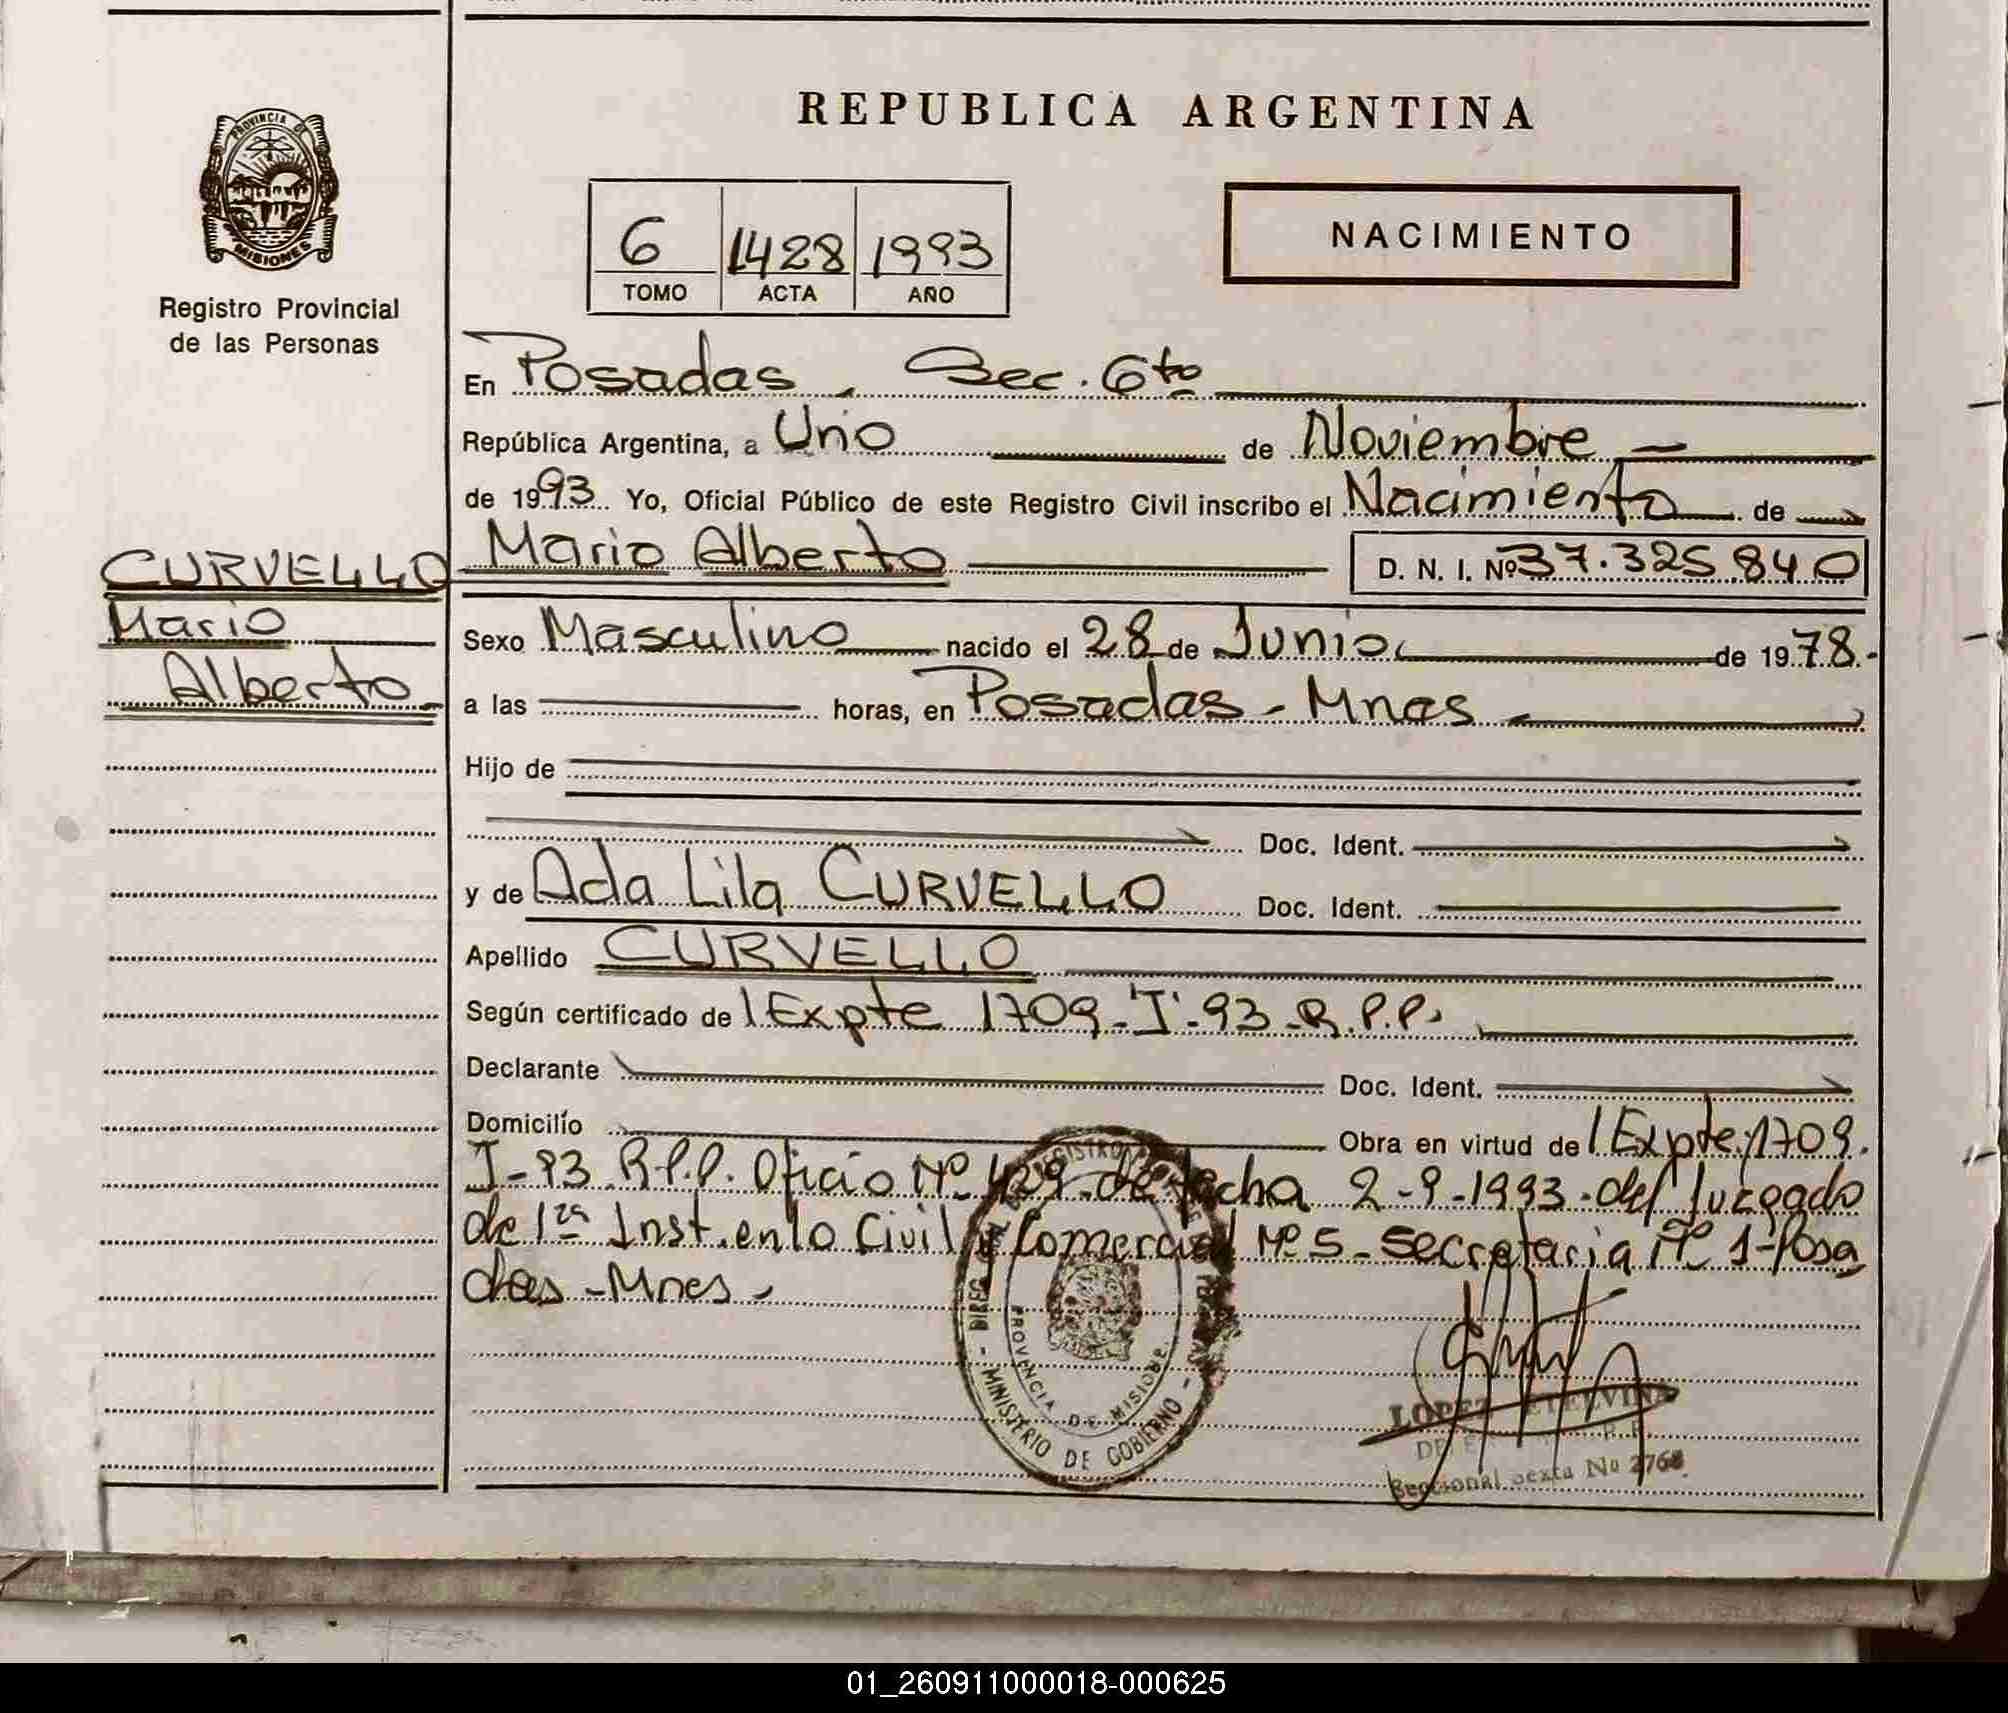 REPUBLICA ARGENTINA
PROVINCIA DE
MISIONES
Registro Provincial
de las Personas
6 1428 1993
TOMO ACTA AÑO
NACIMIENTO
En Posadas, Sec. 6ta
República Argentina, a Uno de Noviembre
de 1993 Yo, Oficial Público de este Registro Civil inscribo el Nacimiento de
CURVELLO
Mario
Alberto
Mario Alberto D. N. I. Nº 37.325.840
Sexo Masculino nacido el 28 de Junio de 1978.-
a las horas, en Posadas - Mnes
Hijo de
Doc. Ident.
y de Ada Lila CURVELLO Doc. Ident.
Apellido CURVELLO
Según certificado de Expte 1709-I-93-R.P.P.
Declarante Doc. Ident.
Domicilío Obra en virtud de Expte 1709.
I-93 R.P.P. Oficio Nº 429 de fecha 2-9-1993 del Juzgado
de 1ra Inst. en lo Civil y Comercial Nº 5 - Secretaria Nº 1 - Posa
das - Mnes -
MINISTERIO DE GOBIERNO
PROVINCIA DE MISIONES
LOPEZ ETELVINA
Seccional Sexta Nº 2768
01_260911000018-000625